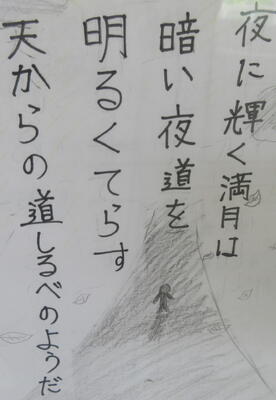 夜に輝く満月は
暗い夜道を
明るくてらす
天からの道しるべのようだ